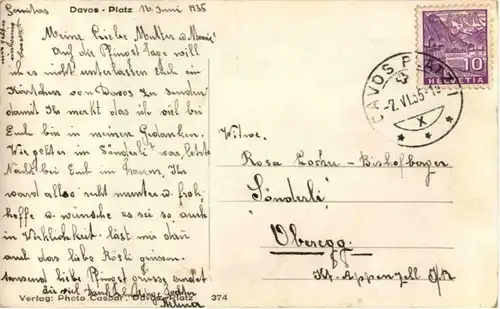 Davos - Platz 10. Juni 1935
Meine Liebe Mutter u.
Auf die Pfingst tage will
ich es nicht unterlassen Euch ein
Kärtchen von Davos zu senden
damit Ihr merkt das ich viel bei
Euch bin in meinen Gedanken.
Wie geht es im Sönderli war letzte
Nacht bei Euch im Traum, Ihr
ward alle recht munter u. froh,
hoffe u. wünsche es sei so auch
in Wirklichkeit. lässt mir dann
auch das liebe Rösli grüssen.
tausend liebe Pfingst grüsse sendet
HELVETIA
10
DAVOS PLATZ 1
-7.VI.35-
X
Witwe.
Rosa Bischofberger
"Sönderli"
Oberegg.
Kt. Appenzell I/R
Verlag: Photo Caspar, Davos-Platz 374